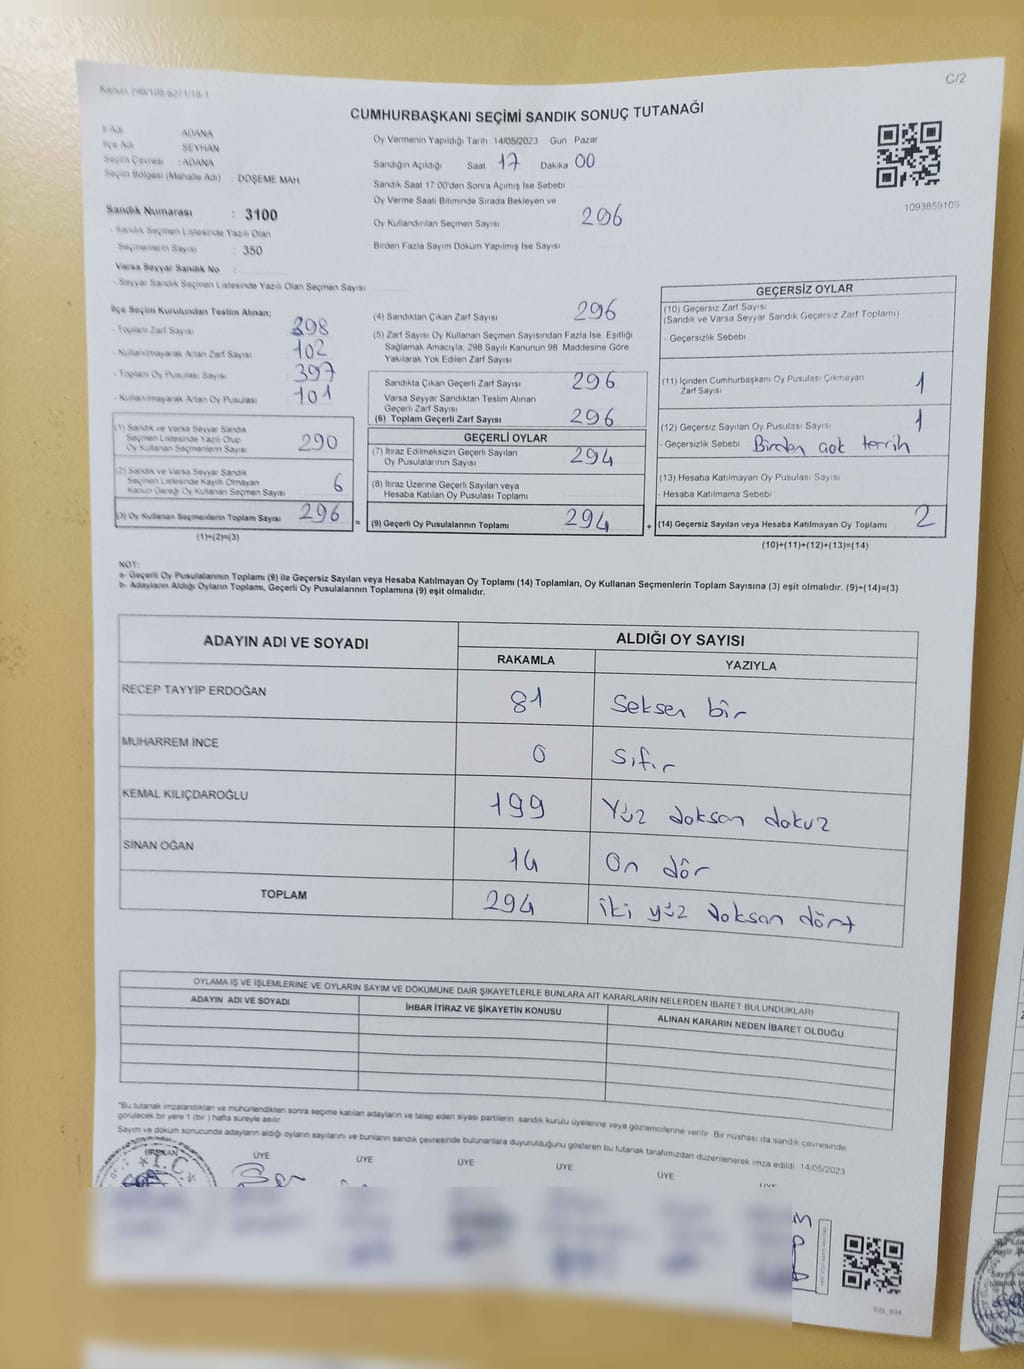 Kanun 298/108-6271/18-1
C/2
CUMHURBAŞKANI SEÇİMİ SANDIK SONUÇ TUTANAĞI
İl Adı : ADANA
İlçe Adı : SEYHAN
Seçim Çevresi : ADANA
Seçim Bölgesi (Mahalle Adı) : DÖŞEME MAH
Sandık Numarası : 3100
- Sandık Seçmen Listesinde Yazılı Olan
Seçmenlerin Sayısı : 350
Varsa Seyyar Sandık No
- Seyyar Sandık Seçmen Listesinde Yazılı Olan Seçmen Sayısı
Oy Vermenin Yapıldığı Tarih 14/05/2023 Gün Pazar
Sandığın Açıldığı Saat 17 Dakika 00
Sandık Saat 17.00'den Sonra Açımış İse Sebebi
Oy Verme Saati Bitiminde Sırada Bekleyen ve
Oy Kullandırılan Seçmen Sayısı 296
Birden Fazla Sayım Döküm Yapılmış İse Sayısı
1093859109
İlçe Seçim Kurulundan Teslim Alınan;
- Toplam Zarf Sayısı 398
- Kullanılmayarak Artan Zarf Sayısı 102
- Toplam Oy Pusulası Sayısı 397
- Kullanılmayarak Artan Oy Pusulası 101
(1) Sandık ve Varsa Seyyar Sandık
Seçmen Listesinde Yazılı Olup
Oy Kullanan Seçmenlerin Sayısı 290
(2) Sandık ve Varsa Seyyar Sandık
Seçmen Listesinde Kayıtlı Olmayan
Kanun Gereği Oy Kullanan Seçmen Sayısı 6
(3) Oy Kullanan Seçmenlerin Toplam Sayısı 296 =
(1)+(2)=(3)
(4) Sandıktan Çıkan Zarf Sayısı 296
(5) Zarf Sayısı Oy Kullanan Seçmen Sayısından Fazla İse, Eşitliği
Sağlamak Amacıyla, 298 Sayılı Kanunun 98. Maddesine Göre
Yakılarak Yok Edilen Zarf Sayısı
Sandıkta Çıkan Geçerli Zarf Sayısı 296
Varsa Seyyar Sandıktan Teslim Alınan
Geçerli Zarf Sayısı
(6) Toplam Geçerli Zarf Sayısı 296
GEÇERLİ OYLAR
(7) İtiraz Edilmeksizin Geçerli Sayılan
Oy Pusulalarının Sayısı 294
(8) İtiraz Üzerine Geçerli Sayılan veya
Hesaba Katılan Oy Pusulası Toplamı
(9) Geçerli Oy Pusulalarının Toplamı 294 +
GEÇERSİZ OYLAR
(10) Geçersiz Zarf Sayısı
(Sandık ve Varsa Seyyar Sandık Geçersiz Zarf Toplamı)
- Geçersizlik Sebebi
(11) İçinden Cumhurbaşkanı Oy Pusulası Çıkmayan
Zarf Sayısı 1
(12) Geçersiz Sayılan Oy Pusulası Sayısı 1
- Geçersizlik Sebebi Birden çok tercih
(13) Hesaba Katılmayan Oy Pusulası Sayısı
- Hesaba Katılmama Sebebi
(14) Geçersiz Sayılan veya Hesaba Katılmayan Oy Toplamı 2
(10)+(11)+(12)+(13)=(14)
NOT:
a- Geçerli Oy Pusulalarının Toplamı (9) ile Geçersiz Sayılan veya Hesaba Katılmayan Oy Toplamı (14) Toplamları, Oy Kullanan Seçmenlerin Toplam Sayısına (3) eşit olmalıdır. (9)+(14)=(3)
b- Adayların Aldığı Oyların Toplamı, Geçerli Oy Pusulalarının Toplamına (9) eşit olmalıdır.
ADAYIN ADI VE SOYADI
ALDIĞI OY SAYISI
RAKAMLA YAZIYLA
RECEP TAYYİP ERDOĞAN 81 Seksen bir
MUHARREM İNCE 0 Sıfır
KEMAL KILIÇDAROĞLU 199 Yüz doksan dokuz
SİNAN OĞAN 14 On dör
TOPLAM 294 iki yüz doksan dört
OYLAMA İŞ VE İŞLEMLERİNE VE OYLARIN SAYIM VE DÖKÜMÜNE DAİR ŞİKAYETLERLE BUNLARA AİT KARARLARIN NELERDEN İBARET BULUNDUKLARI
ADAYIN ADI VE SOYADI İHBAR İTİRAZ VE ŞİKAYETİN KONUSU ALINAN KARARIN NEDEN İBARET OLDUĞU
*Bu tutanak imzalandıktan ve mühürlendikten sonra seçime katılan adayların ve talep eden siyasi partilerin sandık kurulu üyelerine veya gözlemcilerine verilir. Bir nüshası da sandık çevresinde
görülecek bir yere 1 (bir) hafta süreyle asılır.
Sayım ve döküm sonucunda adayların aldığı oyların sayılarını ve bunların sandık çevresinde bulunanlara duyurulduğunu gösteren bu tutanak tarafımızdan düzenlenerek imza edildi. 14/05/2023
BAŞKAN ÜYE ÜYE ÜYE ÜYE ÜYE ÜYE
T.C.